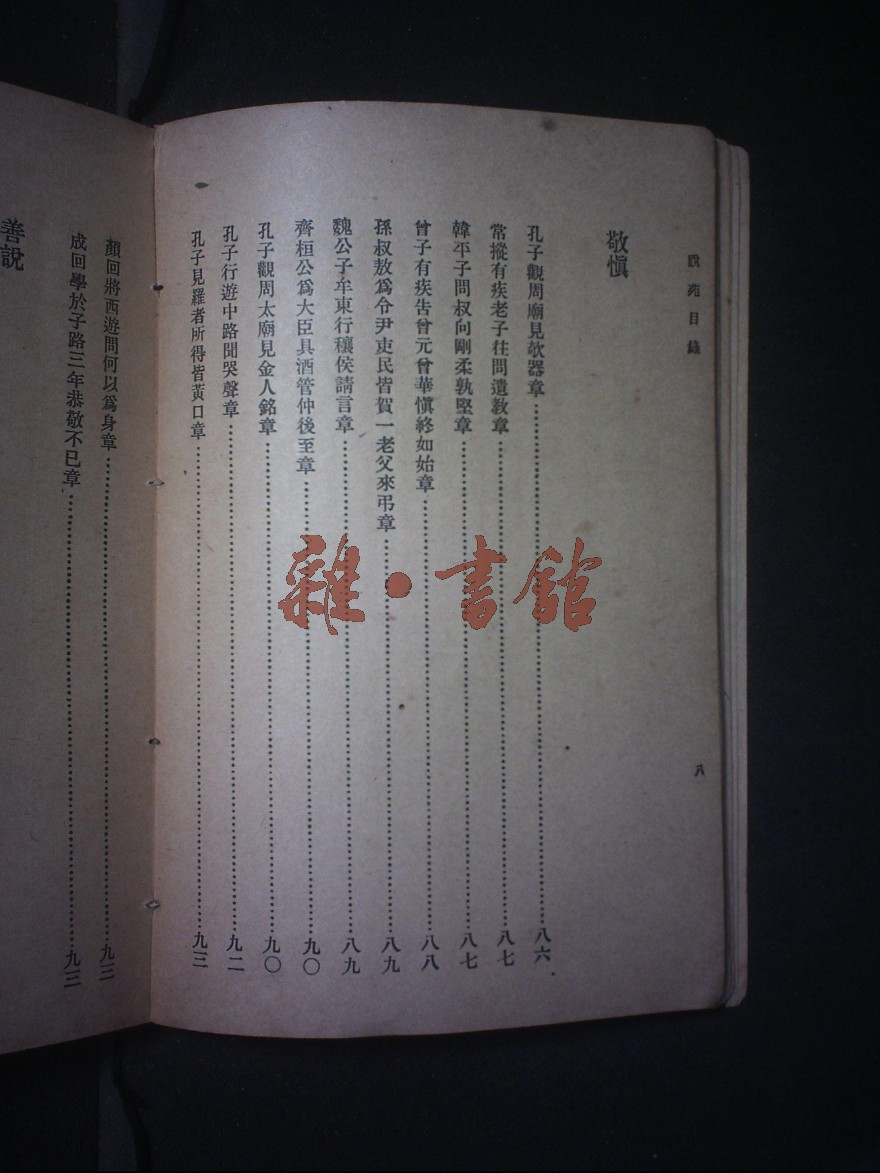 說苑目錄
八
敬慎
孔子觀周廟見欹器章……八六
常摐有疾老子往問遺教章……八七
韓平子問叔向剛柔孰堅章……八七
曾子有疾告曾元曾華慎終如始章……八八
孫叔敖爲令尹吏民皆賀一老父來弔章……八九
魏公子牟東行穰侯請言章……八九
齊桓公爲大臣具酒管仲後至章……九〇
孔子觀周太廟見金人銘章……九〇
孔子行遊中路聞哭聲章……九二
孔子見羅者所得皆黃口章……九三
顏回將西遊問何以爲身章……九三
成回學於子路三年恭敬不已章……九三
善說
雜·書館